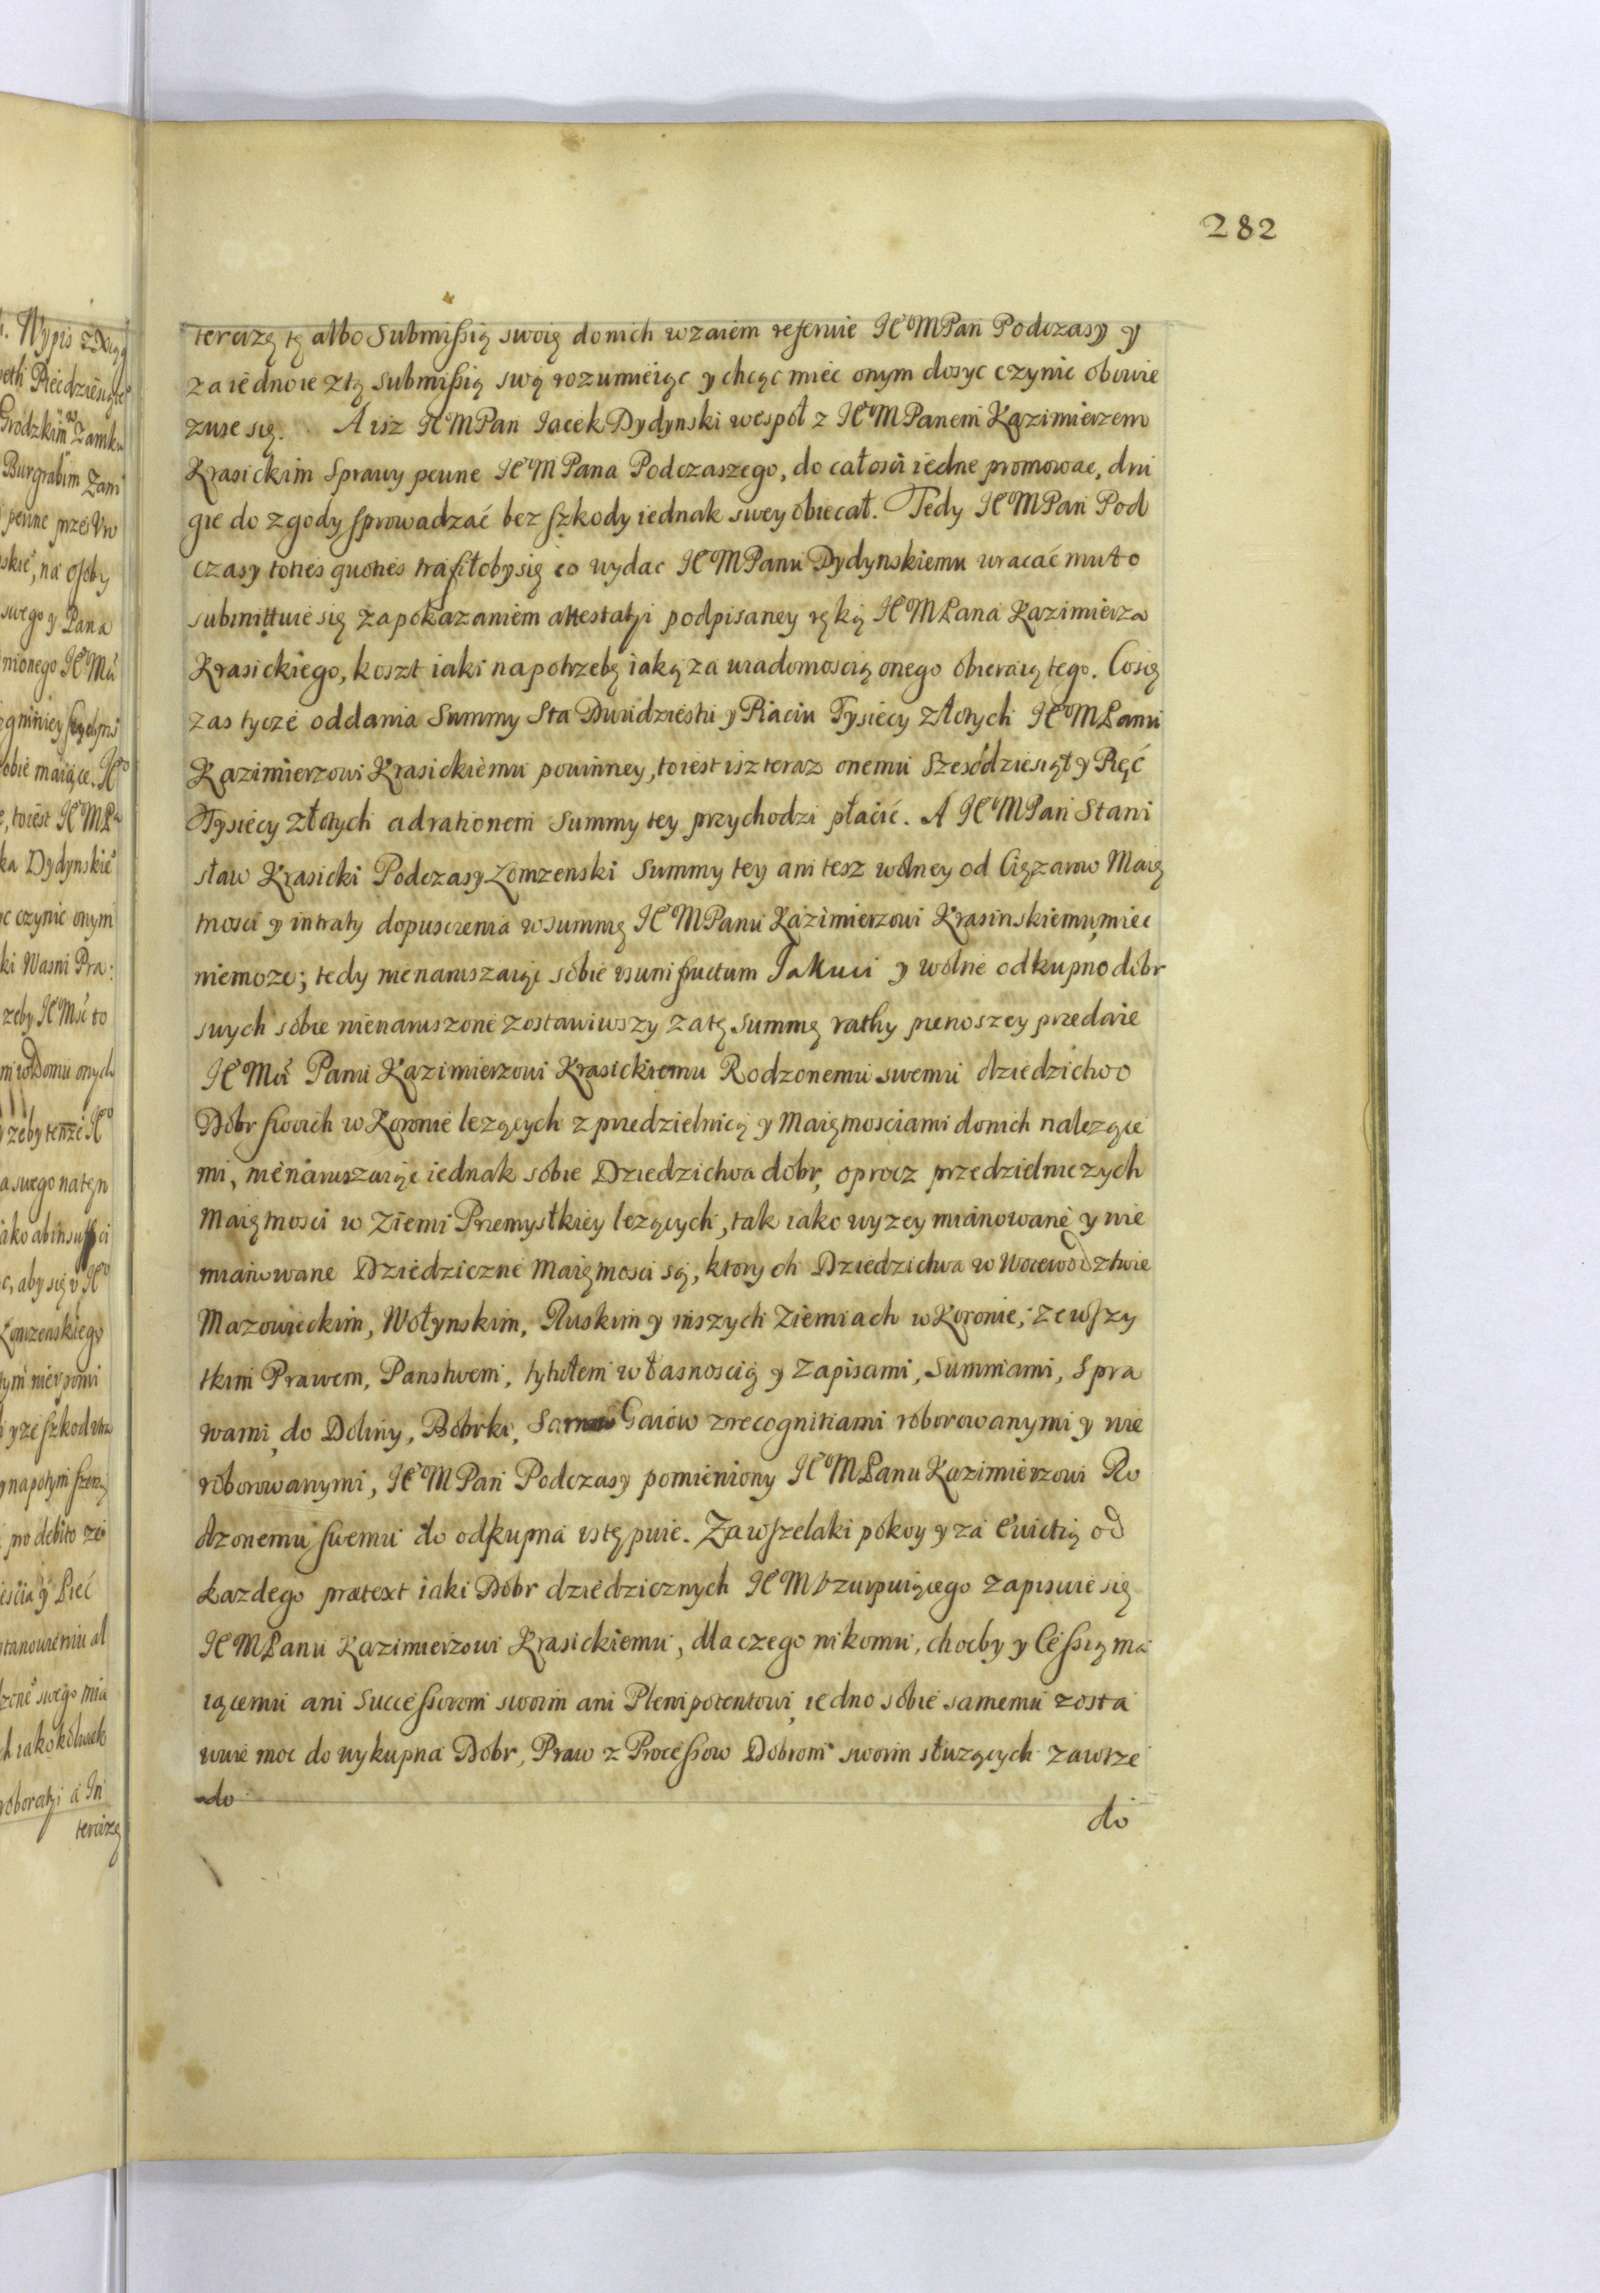 282
tercizę tę albo Submissią swoię do nich wzaiem referuie IeMPan Podczasy y
za iednoie ztą submissią swą rozumieiąc y chcąc miec onym dosyc czynic obowie
zuie się. A isz IeMPan Iacek Dydynski wespoł z IeMPanem Kazimierzem
Krasickim Sprawy pewne IeM Pana Podczaszego, do całosci iedne promowac, dru
gie do zgody sprowadzać bez szkody iednak swey obiecał. Tedy IeMPan Pod
czasy toties quoties trafiłoby się co wydac IeMPanu Dydynskiemu wracać mu to
submittuie się za pokazaniem attestatyi podpisaney ręką IeMPana Kazimierza
Krasickiego, koszt iaki na potrzebę iaką za wiadomoscią onego obieraiątego. Co się
zas tycze oddania Summy Sta Dwudziestu y Piaciu Tysięcy złotych IeMPanu
Kazimierzowi Krasickiemu powinney, to iest isz teraz onemu Szescdziesiąt y Pięć
Tysięcy złotych ad rationem Summy tey przychodzi płacić. A IeMPan Stani
sław Krasicki Podczasy Łomzenski Summy tey ani tesz wolney od Cięzarow Maię
tnosci y intraty dopuscienia w summę IeMPanu Kazimierzowi Krasinskiemu, miec
niemoze; tedy nienaruszaiąc sobie usumfructum y wolne odkupno dobr
swych sobie nienaruszone zostawiwszy za tę Summę rathy pierwszey przedaie
IeMci Panu Kazimierzowi Krasickiemu Rodzonemu swemu dziedzictwo
Dobr swoich w Koronie lezących z przedzielnicą y Maiętnosciami do nich nalezące
mi, nienaruszaiąc iednak sobie Dziedzictwa dobr, oprocz przedzielniczych
Maiętnosci w Ziemi Przemyslkiey lezących, tak iako wyzey mianowane y nie
mianowane Dziedziczne Maiętnosci są, ktorych Dziedzictwa w Woiewodztwie
Mazowieckim, Wołynskim, Ruskim y inszych Ziemiach w Koronie, ze wszy
tkim Prawem, Panstwem, tytułem własnoscią y Zapisami, Summami, Spra
wami, do Doliny, Bobrki, Gaiow z recognitiami roborowanymi y nie
roborowanymi, IeMPan Podczasy pomieniony IeMPanu Kazimierzowi Ro
dzonemu swemu do odkupna ustępuie. Za wszelaki pokoy y za Ewictią od
kazdego praetext iaki Dobr dziedzicznych IeM Vzurpuiącego zapisuie się
IeMPanu Kazimierzowi Krasickiemu, dla czego nikomu, chocby y Cessią ma
iącemu ani Successorom swoim ani Plenipotentowi, iedno sobie samemu zosta
wuie moc do wykupna Dobr, Praw z Processow Dobrom swoim słuzących zawsze
do
do